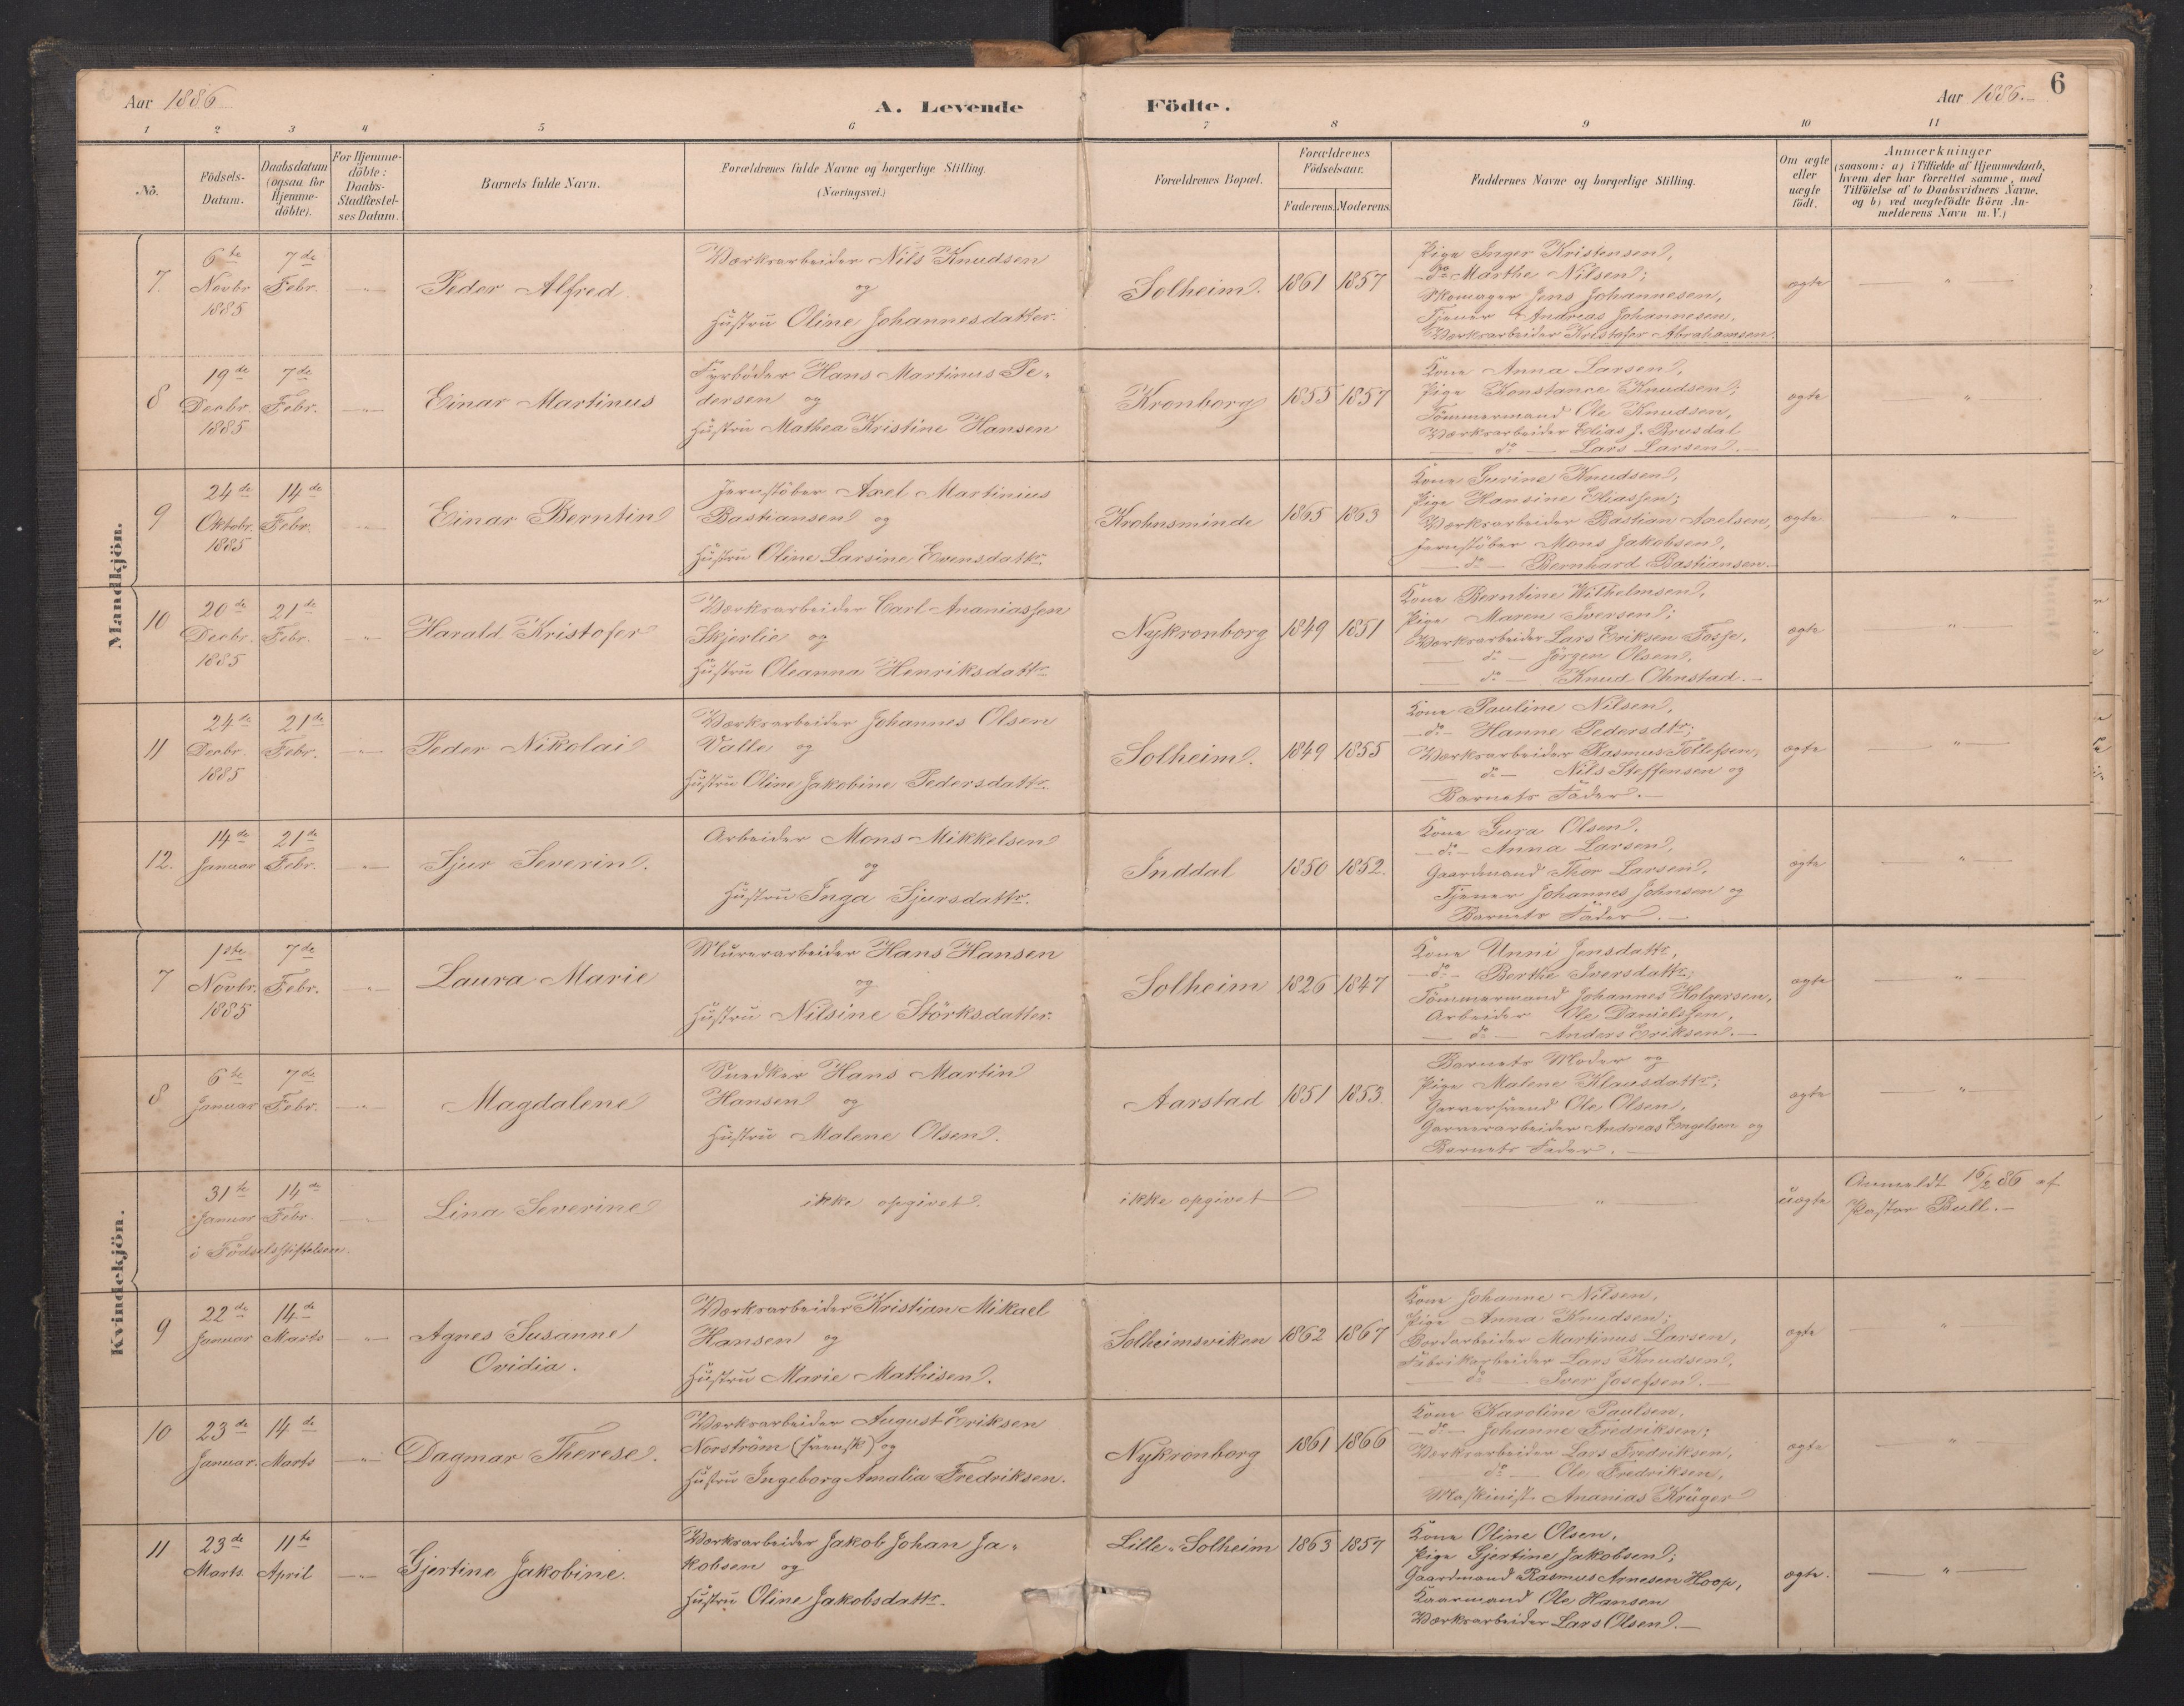 6
Aar 1886
A. Levende Födte.
Aar 1886.
1 2 3 4 5 6 7 8 9 10 11
No.
Födsels-Datum.
Daabsdatum (ogsaa for Hjemme-döbte).
For Hjemme-döbte: Daabs-Stadfæstel-ses Datum.
Barnets fulde Navn.
Forældrenes fulde Navne og borgerlige Stilling
(Næringsvei.)
Forældrenes Bopæl.
Forældrenes Födselsaar.
Faderens. Moderens.
Faddernes Navne og borgerlige Stilling.
Om ægte eller uægte födt.
Anmærkninger
(saasom: a) i Tilfælde af Hjemmedaab,
hvem der har forrettet samme, med
Tilföielse af to Daabsvidners Navne.
og b) ved uægtefödte Börn An-
melderens Navn m. V.)
Mandkjön.
7
6te Novbr 1885
7de Febr.
Peder Alfred.
Værksarbeider Nils Knudsen
og
Hustru Oline Johannesdatter.
Solheim.
1861 1857
Pige Inger Kristensen,
do Marthe Nilsen;
Skomager Jens Johannesen,
Tjener Andreas Johannesen,
Værksarbeider Kristofer Abrahamsen.
ægte
"
8
19de Decbr. 1885
7de Febr.
Einar Martinus
Fyrböder Hans Martinus Pe-
dersen og
Hustru Mathea Kristine Hansen
Kronborg
1855 1857
Kone Anna Larsen,
Pige Konstance Knudsen;
Tömmermand Ole Knudsen,
Værksarbeider Elias J. Brusdal
do Lars Larsen.
ægte
"
9
24de Oktobr. 1885
14de Febr.
Einar Berntin
Jernstöber Axel Martinius
Bastiansen og
Hustru Oline Larsine Evensdattr.
Krohnsminde
1865 1863
Kone Gurine Knudsen,
Pige Hansine Eliassen;
Værksarbeider Bastian Axelsen,
Jernstöber Mons Jakobsen,
do Bernhard Bastiansen.
ægte
"
10
20de Decbr. 1885
21de Febr.
Harald Kristofer
Værksarbeider Carl Ananiassen
Skjerlie og
Hustru Oleanna Henriksdattr
Nykronborg
1849 1851
Kone Berntine Wilhelmsen,
Pige Maren Iversen;
Værksarbeider Lars Eriksen Fosse,
do Jörgen Olsen,
do Knud Ohnstad.
ægte
"
11
24de Decbr. 1885
21de Febr.
Peder Nikolai
Værksarbeider Johannes Olsen
Valle og
Hustru Oline Jakobine Pedersdattr.
Solheim.
1849 1855
Kone Pauline Nilsen,
do Hanne Pedersdtr;
Værksarbeider Rasmus Tollefsen,
do Nils Steffensen og
Barnets Fader.
ægte
"
12.
14de Januar
21de Febr.
Sjur Severin.
Arbeider Mons Mikkelsen
og
Hustru Inga Sjursdattr.
Inddal
1850 1852.
Kone Gura Olsen.
do Anna Larsen,
Gaardmand Thor Larsen,
Tjener Johannes Johnsen og
Barnets Fader.
ægte
"
Kvindekjön.
7
1ste Novbr. 1885
7de Febr.
Laura Marie
Murerarbeider Hans Hansen
og
Hustru Nilsine Störksdatter.
Solheim
1826 1847
Kone Unni Jensdattr,
do Berthe Iversdattr;
Tömmermand Johannes Holgersen,
Arbeider Ole Danielssen,
do Anders Eriksen.
ægte
"
8
6te Januar
7de Febr.
Magdalene
Snedker Hans Martin
Hansen og
Hustru Malene Olsen.
Aarstad
1851 1853.
Barnets Moder og
Pige Malene Klausdattr;
Garversvend Ole Olsen,
Garverarbeider Andreas Engelsen og
Barnets Fader.
ægte
"
31te Januar
14de Febr.
i Födselsstiftelsen
Lina Severine
ikke opgivet.
ikke opgivet
"
uægte
Anmeldt 16/2 86 af
Pastor Bull.
9
22de Januar
14de Marts
Agnes Susanne
Ovidia.
Værksarbeider Kristian Mikael
Hansen og
Hustru Marie Mathisen.
Solheimsviken
1862 1867
Kone Johanne Nilsen,
Pige Anna Knudsen;
Bordarbeider Martinus Larsen,
Fabrikarbeider Lars Knudsen,
do Iver Josefsen.
ægte
"
10
23de Januar.
14de Marts
Dagmar Therese.
Værksarbeider August Eriksen
Norström (svensk) og
Hustru Ingeborg Amalia Fredriksen.
Nykronborg
1861 1866
Kone Karoline Paulsen,
do Johanne Fredriksen;
Værksarbeider Lars Fredriksen,
do Ole Fredriksen,
Maskinist Ananias Krüger
ægte
"
11
23de Marts.
11te April
Gjertine Jakobine.
Værksarbeider Jakob Johan Ja-
kobsen og
Hustru Oline Jakobsdattr.
Lille-Solheim
1863 1857
Kone Oline Olsen,
Pige Gjertine Jakobsen;
Gaardmand Rasmus Arnesen Hoop,
Kaarmand Ole Hansen
Værksarbeider Lars Olsen.
ægte.
"